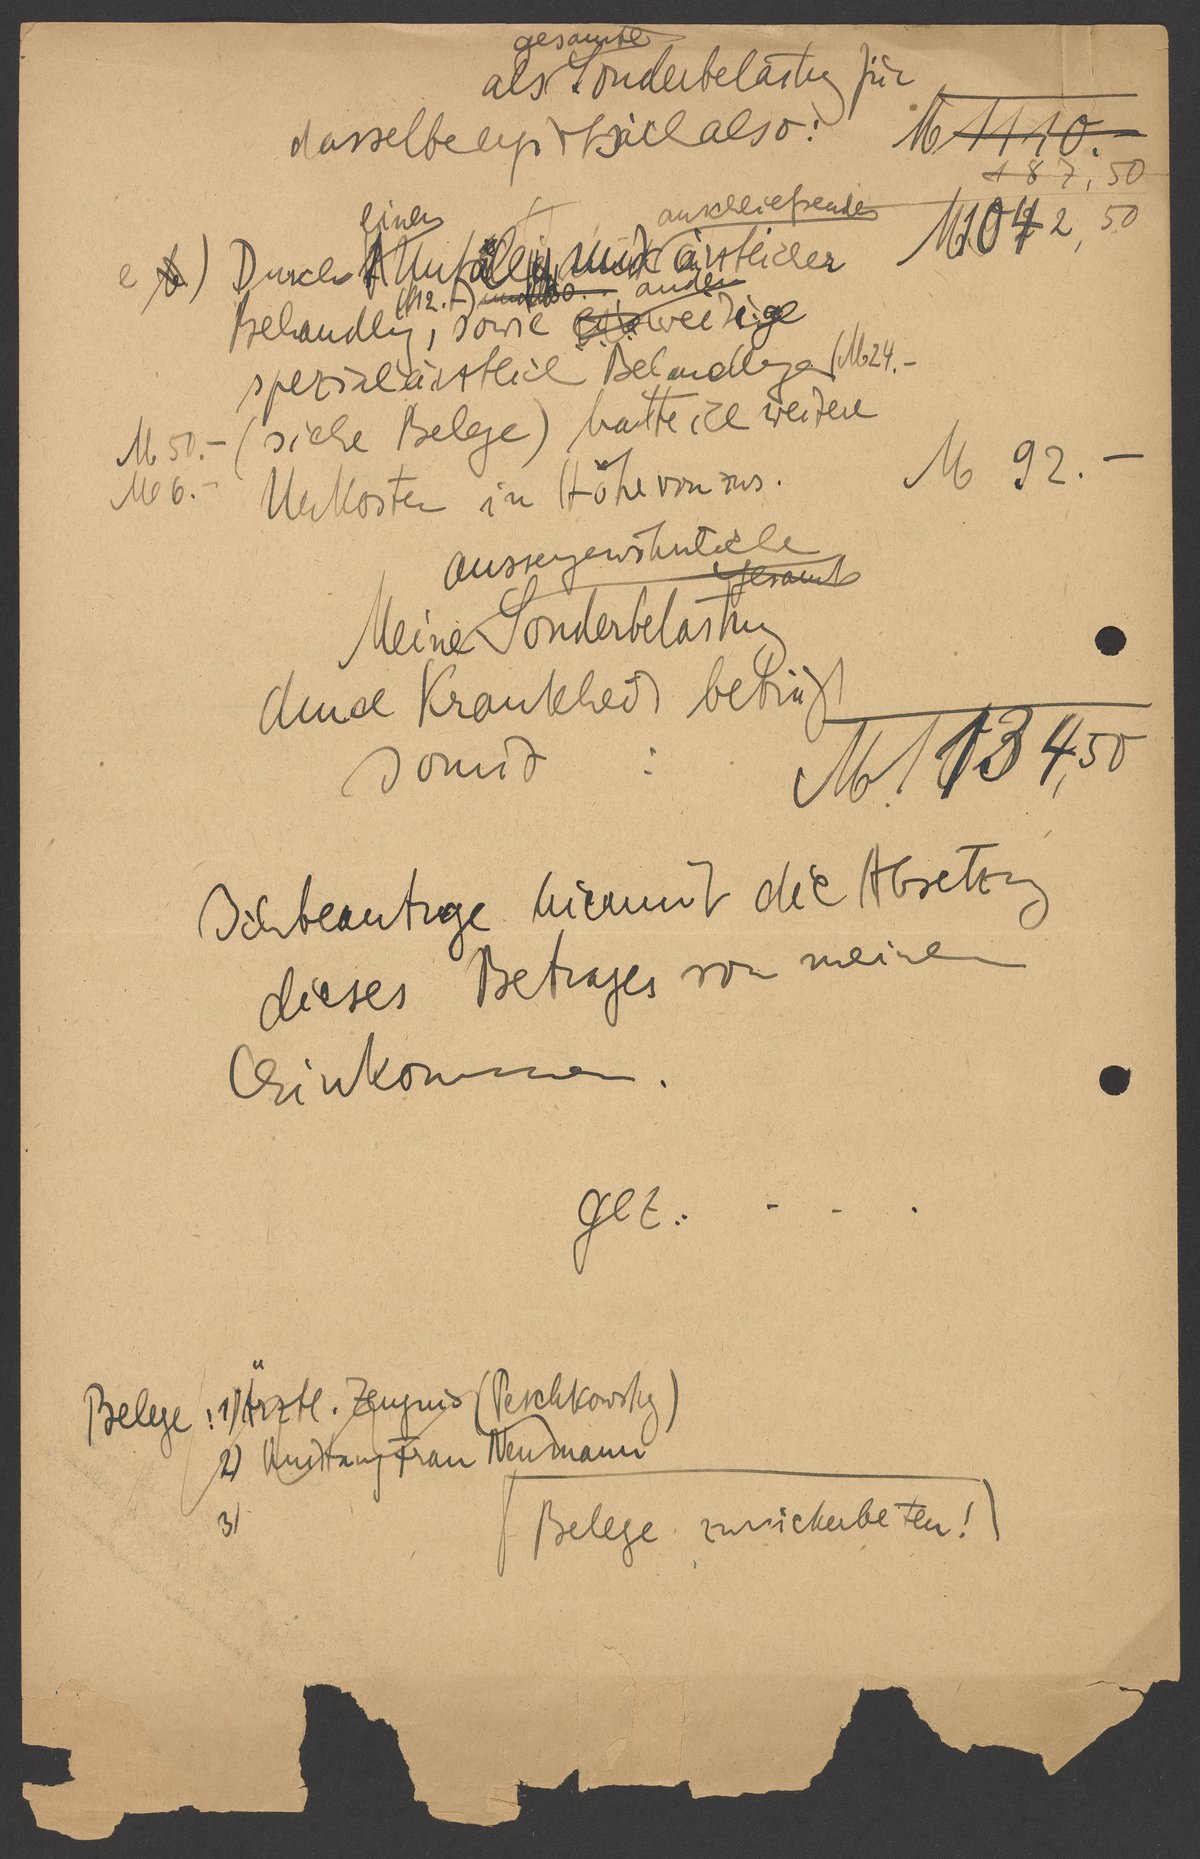 gesamte
als Sonderbelastg für
dasselbe ergibt sich also: M 1110.-
+ 87,50
einen anschliessender M 1042,50
e b) Durch Unfälle mit ärztlicher
(M12.-) und ander
Behandlg, sowie weitige
spezialärztlich Behandlgen (M24.-
M 50.- (siehe Belege) hatte ich weitere
M 6.- Unkosten in Höhe von zus. M 92.-
aussergewöhnliche
gesamt
Meine Sonderbelastung
durch Krankheit beträgt
somit : M 1134,50
Ich beantrage hiermit die Absetzg
dieses Betrages von meinem
Einkommen.
gez. . - - .
Belege : 1) Ärztl. Zeugnis (Peschkowsky)
2) Quittung Frau Neumann
3)
Belege zurückerbeten!